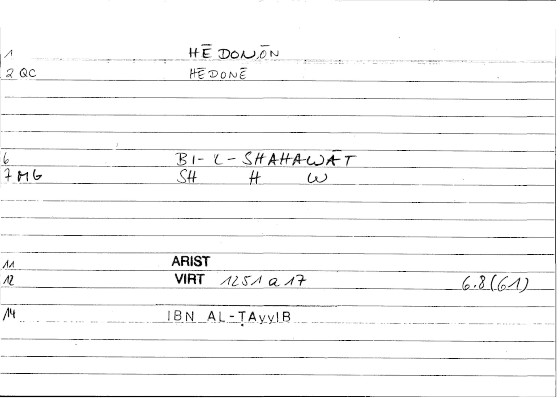 1 HĒDONŌN
2 QC HĒDONĒ
6 BI-L-SHAHAWĀT
7 MG SH H W
11 ARIST
12 VIRT 1251 a 17 6.8(61)
14 IBN AL-ṬAYYIB